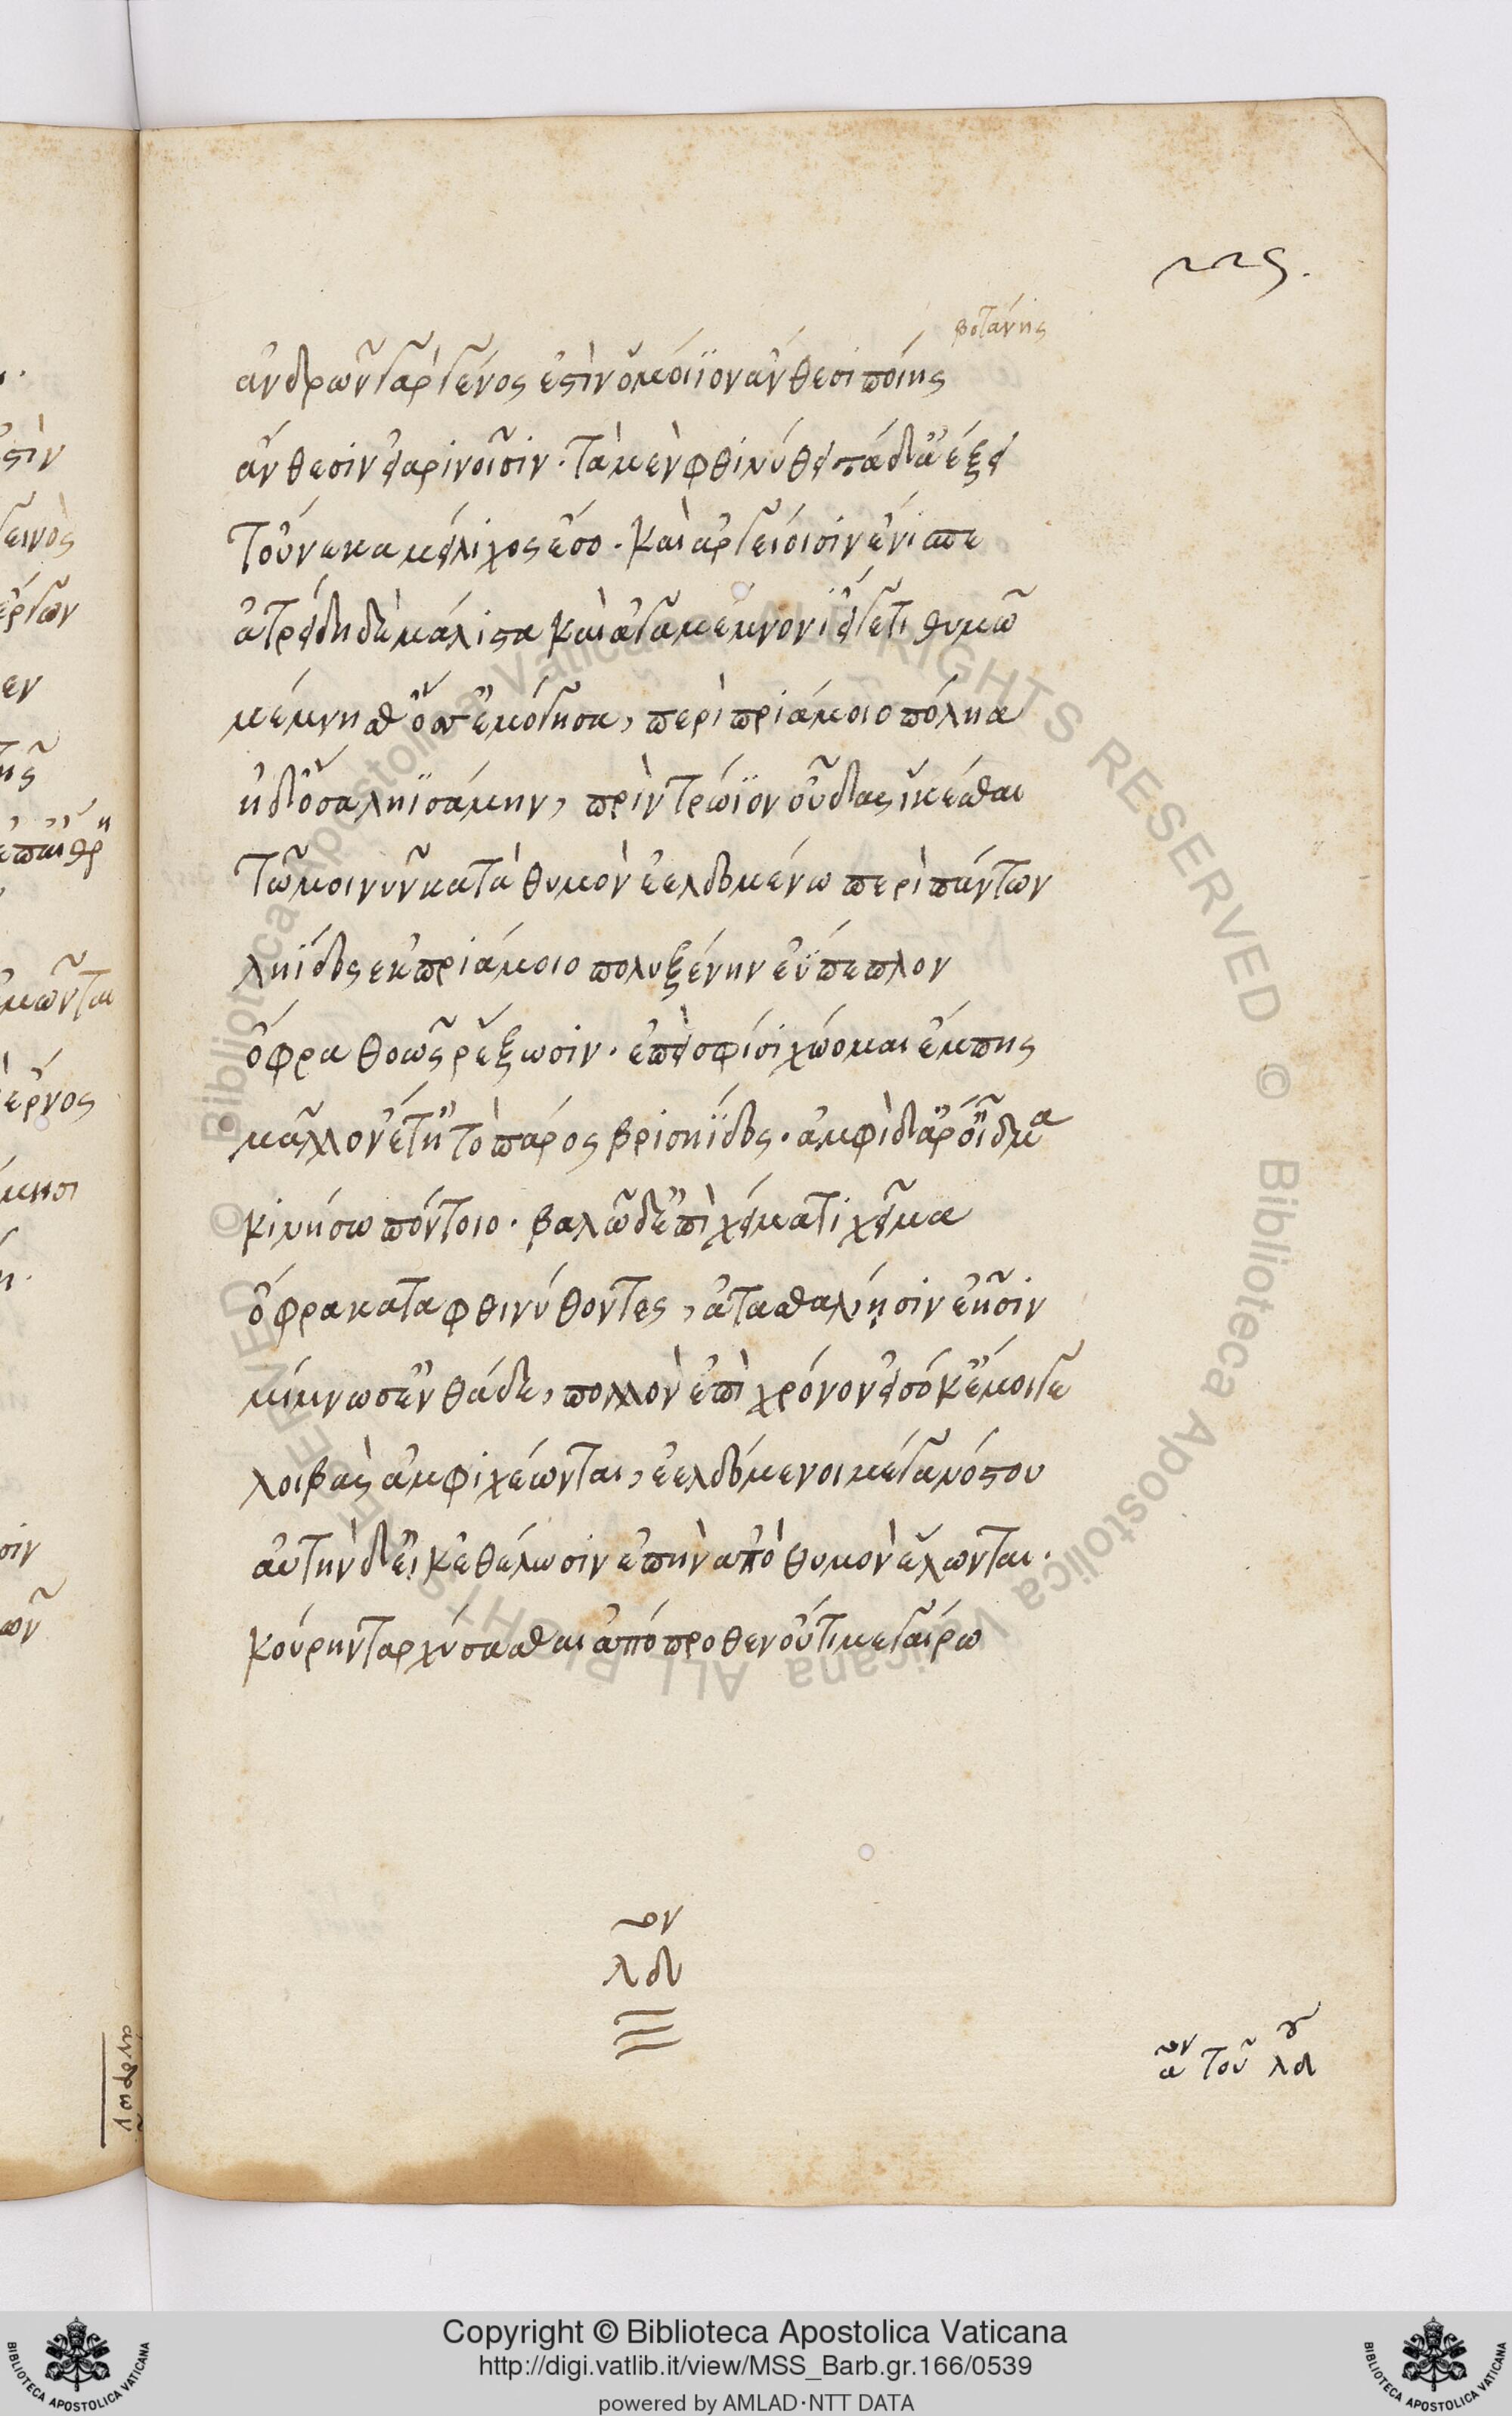 βοτάνης
ἀνδρῶν γὰρ γένος ἐστὶν ὁμοίϊον ἄνθεσι ποίης
ἄνθεσιν εἰαρινοῖσιν· τὰ μὲν φθινύθει τὰ δ' ἀέξει
τοὔνεκα μείλιχος ἔσο· καὶ ἀργείοισιν ἔνισπε
ἀτρείδη δὲ μάλιστα καὶ ἀγαμέμνονι εἴ γέ τι θυμῶ
μέμνηνθ' ὅσ' ἐμόγησα, περὶ πριάμοιο πόληα
ἠδ' ὅσα ληϊσάμην, πρὶν τρώϊον οὖδας ἱκέσθαι
τῶ μοι νῦν κατὰ θυμὸν ἐελδομένω περὶ πάντων
ληΐδος ἐκ πριάμοιο πολυξένην εὔπεπλον
ὄφρα θοῶς ῥέξωσιν· ἐπεὶ σφίσι χώομαι ἔμπης
μᾶλλον ἔτ' ἢ τὸ πάρος βρισηΐδος· ἀμφὶ δ' ἄρ' οἶδμα
κινήσω πόντοιο· βαλῶ δ' ἐπὶ χείματι χεῖμα
ὄφρα καταφθινύθοντες, ἀτασθαλίησιν ἑῆσιν
μίμνωσ' ἐνθάδε, πολλὸν ἐπὶ χρόνον εἰσόκ' ἔμοιγε
λοιβὰς ἀμφιχέωνται, ἐελδόμενοι μέγα νόστου
αὐτὴν δ' εἴ κε θέλωσιν ἐπὴν ἀπὸ θυμὸν ἕλωνται·
κούρην ταρχύσασθαι ἀπόπροθεν οὔτι μεγαίρω
λδ
α τοῦ λδ
ἀνδρῶν
Copyright © Biblioteca Apostolica Vaticana
http://digi.vatlib.it/view/MSS_Barb.gr.166/0539
powered by AMLAD·NTT DATA